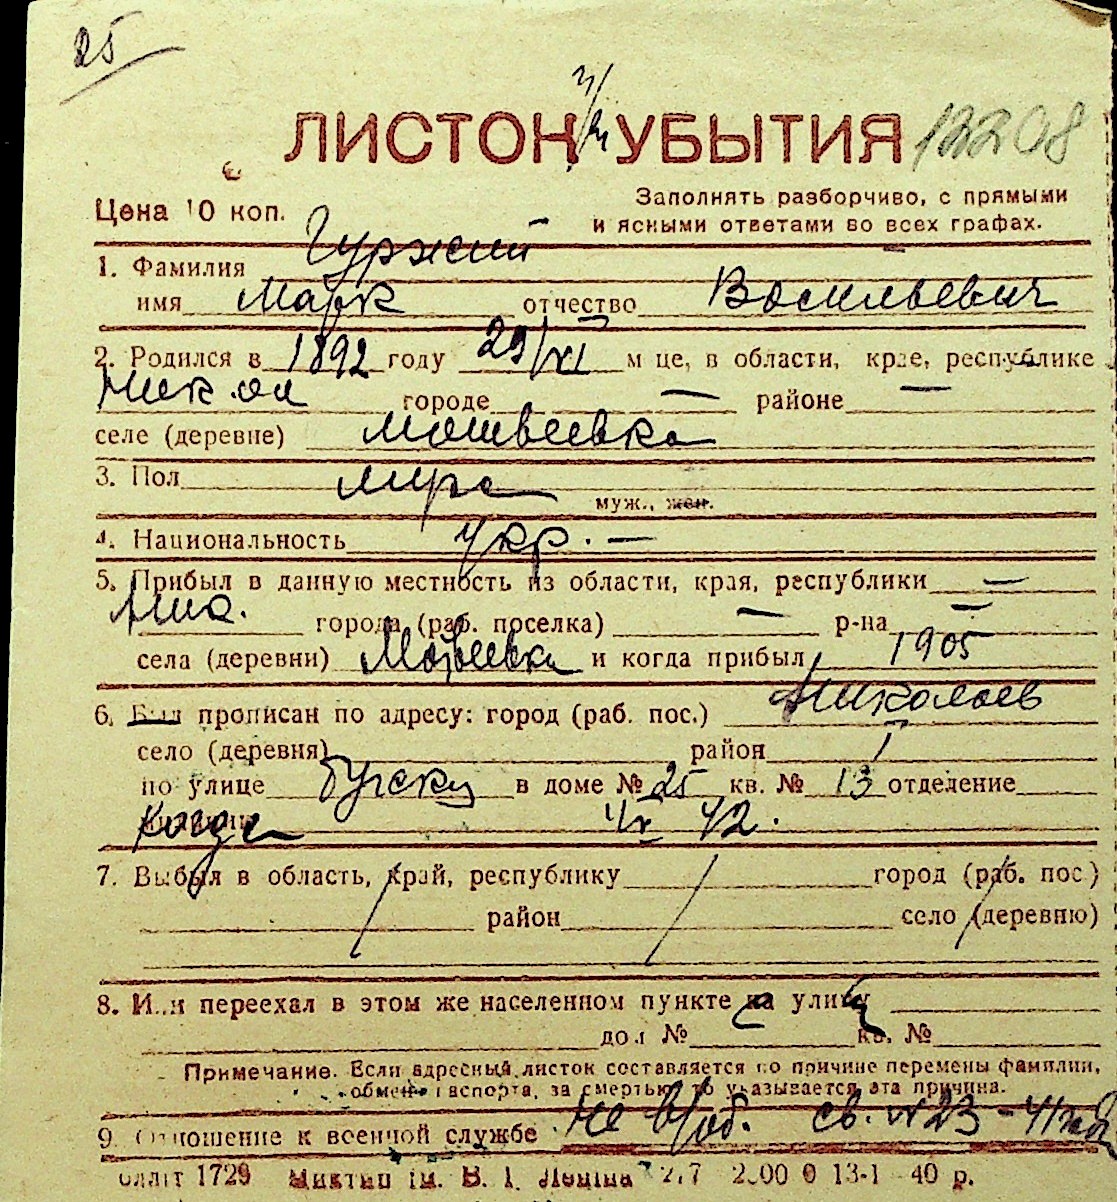 25
ЛИСТОК УБЫТИЯ 12208
Цена 10 коп.
Заполнять разборчиво, с прямыми
и ясными ответами во всех графах.
1. Фамилия Гуржий
имя Марк отчество Васильевич
2. Родился в 1892 году 29/XI м це, в области, крае, республике
Ник. ой городе — районе —
селе (деревне) Матвеевка
3. Пол муж., жен.
4. Национальность укр. —
5. Прибыл в данную местность из области, края, республики —
города (раб. поселка) — р-на —
села (деревни) Матвеевка и когда прибыл 1905
6. Был прописан по адресу: город (раб. пос.) Николаев
село (деревня) район
по улице в доме № 25 кв. № 13 отделение
42.
7. Выбыл в область, край, республику город (раб. пос)
район село (деревню)
8. Или переехал в этом же населенном пункте на улицу
дом № кв. №
Примечание. Если адресный листок составляется по причине перемены фамилии,
обмена паспорта, за смертью, то указывается эта причина.
9. Отношение к военной службе Не в/об. св. №23
1729 В. І. Леніна 13-1 40 р.